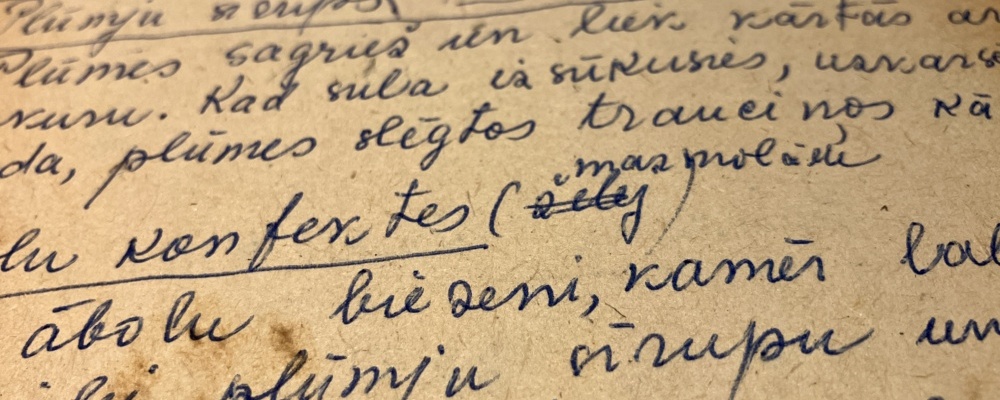 Plūmju sīrups
Plūmes sagriež un liek kārtās ar
kuru. Kad sula izsūkusies, uzkarsē
da, plūmes slēgtos traucinos kā
lu konfektes (žely) mazmolāsu
ābolu biezeni, kamēr lab
plūmju sīrupu un